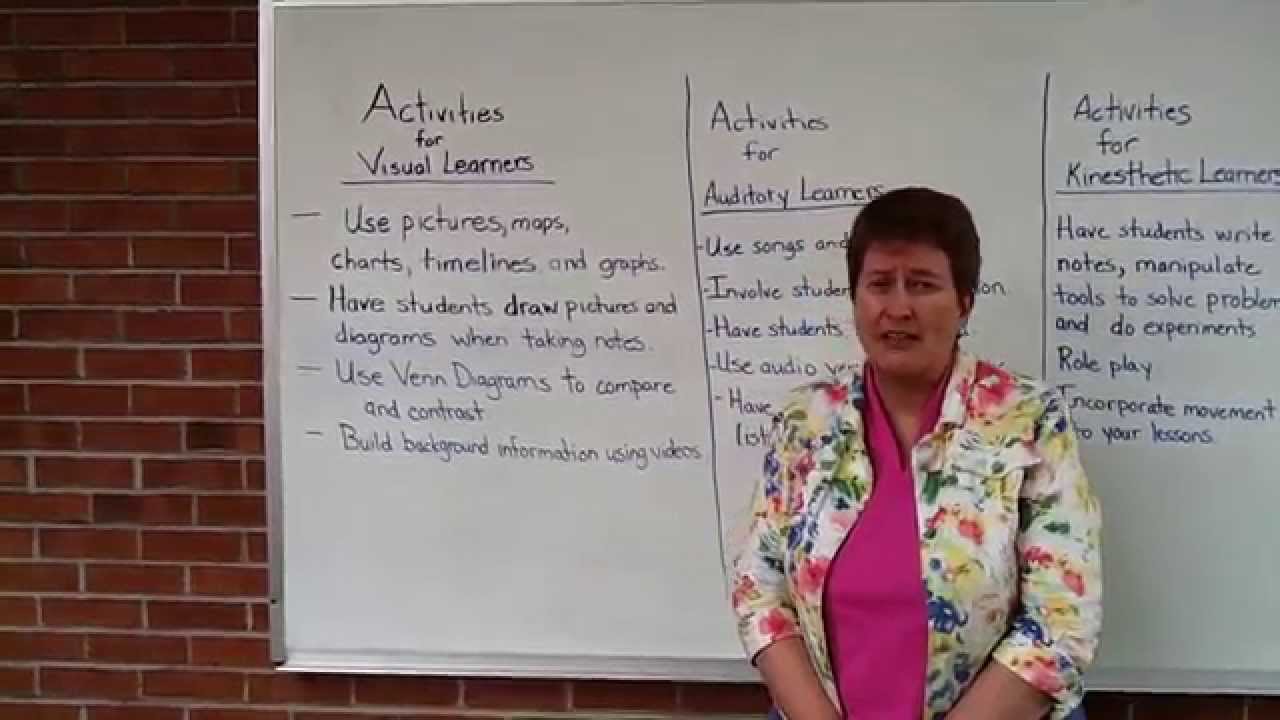 Activities
for
Visual Learners
— Use pictures, maps,
charts, timelines and graphs.
— Have students draw pictures and
diagrams when taking notes.
— Use Venn Diagrams to compare
and contrast
— Build background information using videos
Activities
for
Auditory Learners
-Use songs and
-Involve
-Have students
-Use audio
- Have
Activities
for
Kinesthetic Learners
Have students write
notes, manipulate
tools to solve problem
and do experiments
Role play
Incorporate movement
to your lessons.